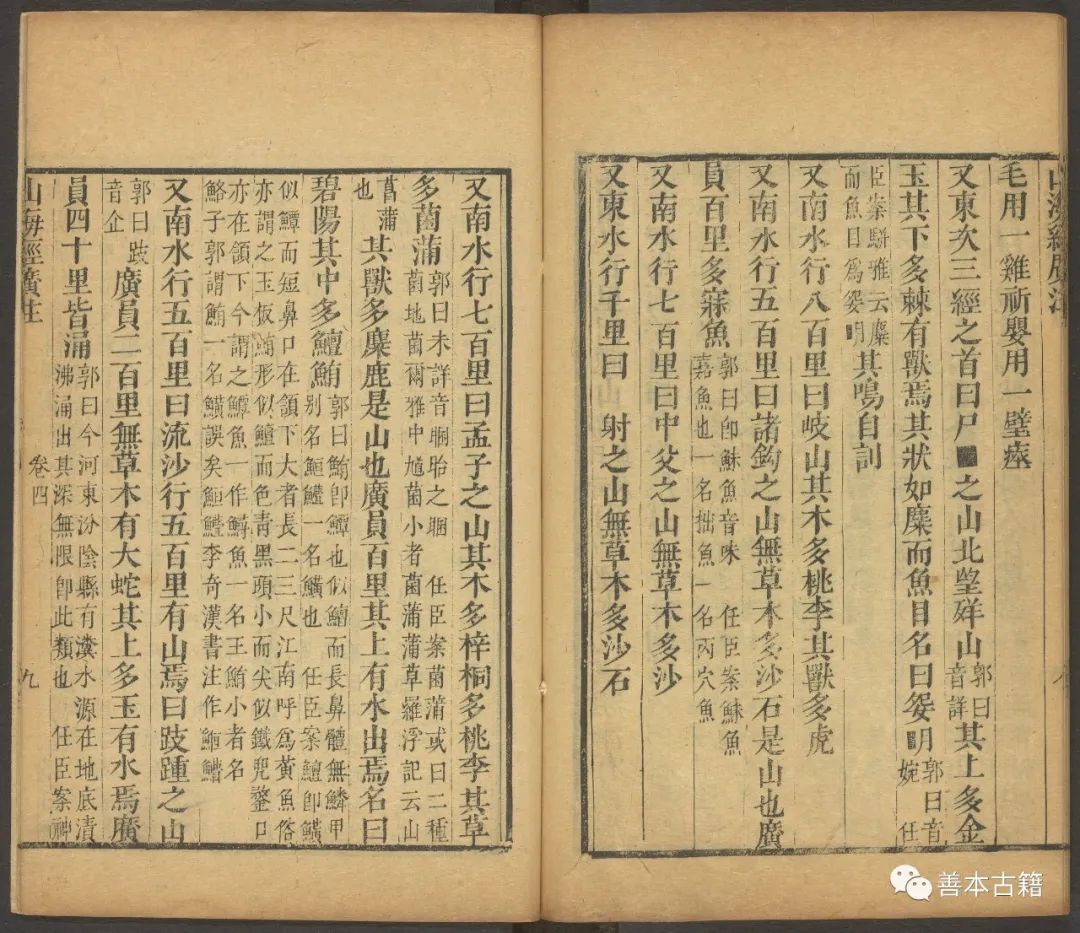 山海經廣注
毛用一雞祈嬰用一璧瘞
又東次三經之首曰尸■之山北望䍧山郭曰音詳其上多金
玉其下多棘有獸焉其狀如麋而魚目名曰妴■月郭曰音婉任
臣案騈雅云麋而魚目爲妴■明其鳴自訆
又南水行八百里曰岐山其木多桃李其獸多虎
又南水行五百里曰諸鈎之山無草木多沙石是山也廣
員百里多寐魚郭曰卽鮇魚音味 任臣案鮇魚嘉魚也一名拙魚一名丙穴魚
又南水行七百里曰中父之山無草木多沙
又東水行千里曰 射之山無草木多沙石
又南水行七百里曰孟子之山其木多梓桐多桃李其草
多菌蒲郭曰未詳音䐃胎之䐃 任臣案菌蒲或曰二種菌地菌爾雅中馗菌小者菌蒲蒲草羅浮記云山
菖蒲也其獸多麋鹿是山也廣員百里其上有水出焉名曰
碧陽其中多鱣鮪郭曰鮪卽鱏也似鱣而長鼻體無鱗甲别名䱭䲛一名鱑也 任臣案鱣卽鱑
似鱏而短鼻口在頷下大者長二三尺江南呼爲黃魚俗
亦謂之玉板鮪形似鱣而色青黑頭小而尖似鐵兠鍪口
亦在頷下今謂之鱏魚一作鱘魚一名王鮪小者名
鮥子郭謂鮪一名鱑誤矣䱭䲛李奇漢書注作䱭䲛
又南水行五百里曰流沙行五百里有山焉曰跂踵之山
郭曰跂音企廣員二百里無草木有大蛇其上多玉有水焉廣
員四十里皆涌郭曰今河東汾陰縣有瀵水源在地底濆沸涌出其深無限卽此類也 任臣案神
山海經廣注 卷四 九
善本古籍